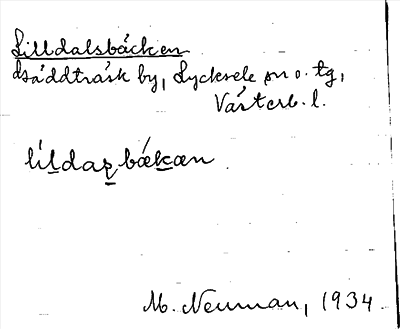 Lilldalsbäcken
Gäddträsk by, Lycksele sn o. tg,
Västerb. l.
líldaʂ bǽkæn
M. Neuman, 1934